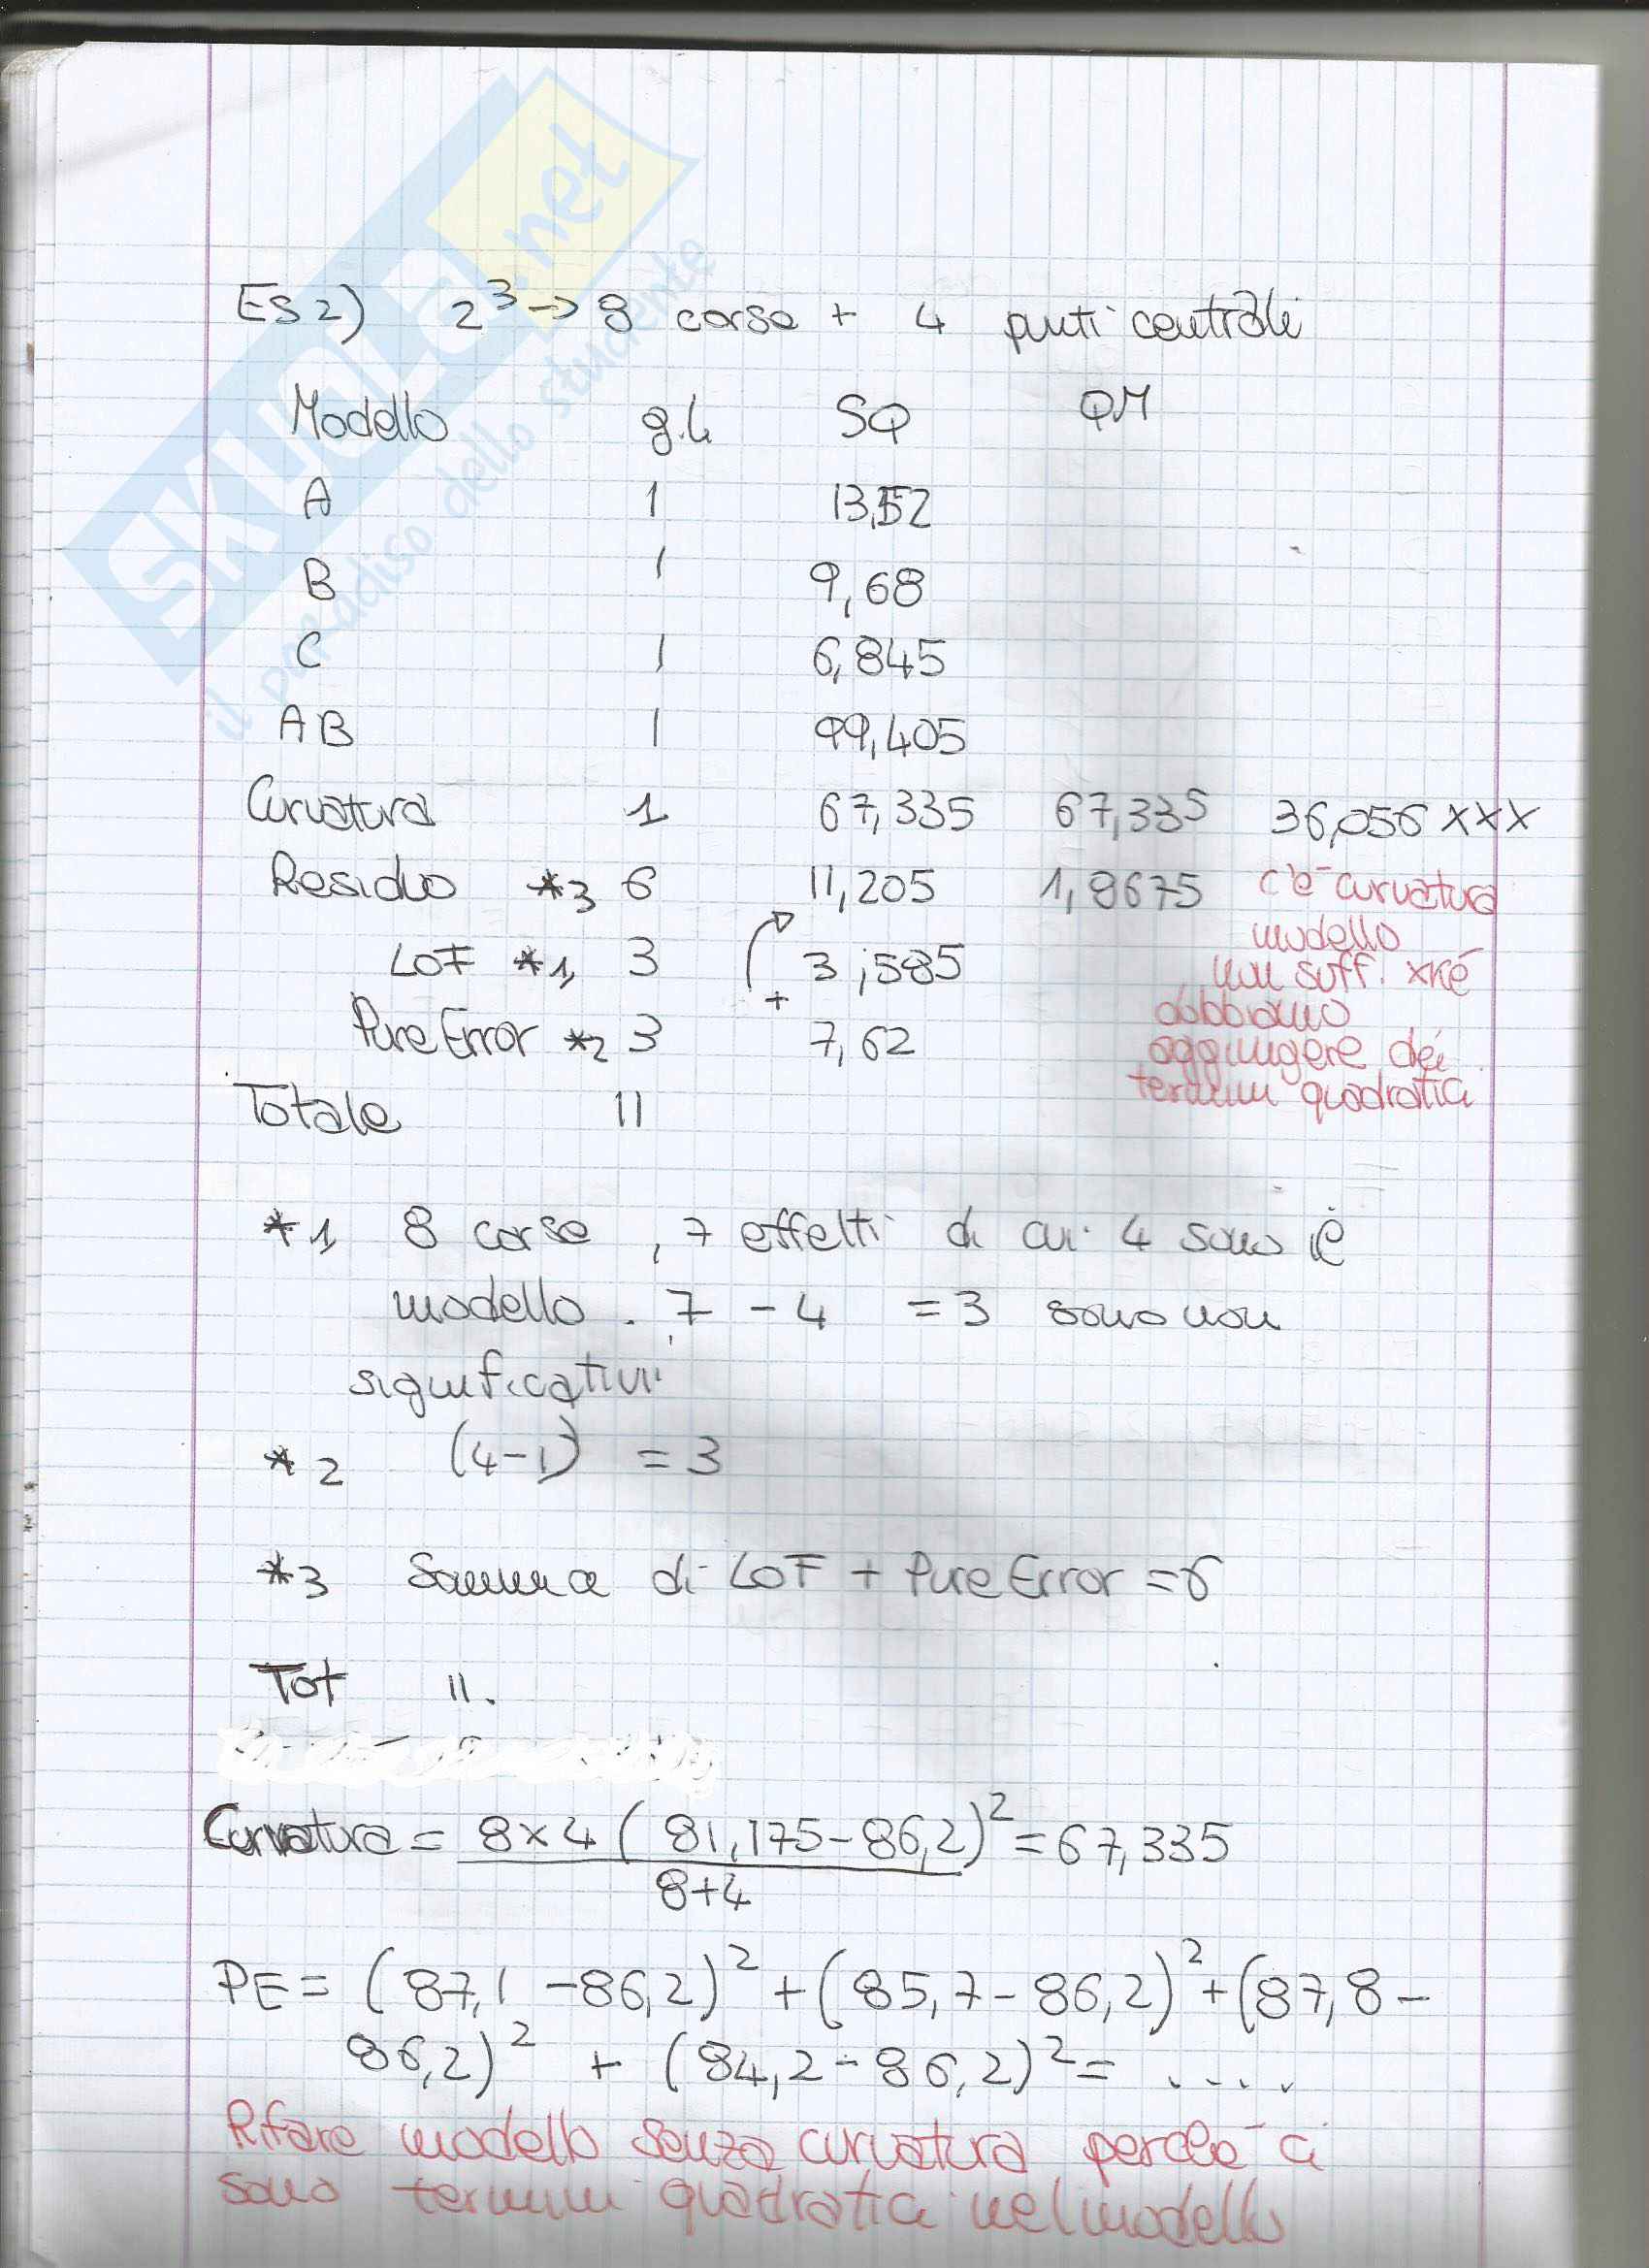 SKUOLA.net
il paradiso dello studente
ES 2) 2³ -> 8 corse + 4 punti centrali
Modello g.l SQ QM
A 1 13,52
B 1 9,68
C 1 6,845
AB 1 99,405
Curvatura 1 67,335 67,335 36,056 xxx
Residuo *3 6 11,205 1,8675 c'è curvatura
modello
LOF *1 3 3,585 non suff. xké
dobbiamo
Pure Error *2 3 + 7,62 aggiungere dei
termini quadratici
Totale 11
*1 8 corse, 7 effetti di cui 4 sono il
modello. 7 - 4 = 3 sono non
significativi
*2 (4-1) = 3
*3 Somma di LOF + Pure Error = 6
Tot 11.
Curvatura = 8x4 (81,175-86,2)² = 67,335
8+4
PE = (87,1 -86,2)² + (85,7- 86,2)² + (87,8 -
86,2)² + (84,2-86,2)² = ....
Rifare modello senza curvatura perchè ci
sono termini quadratici nel modello